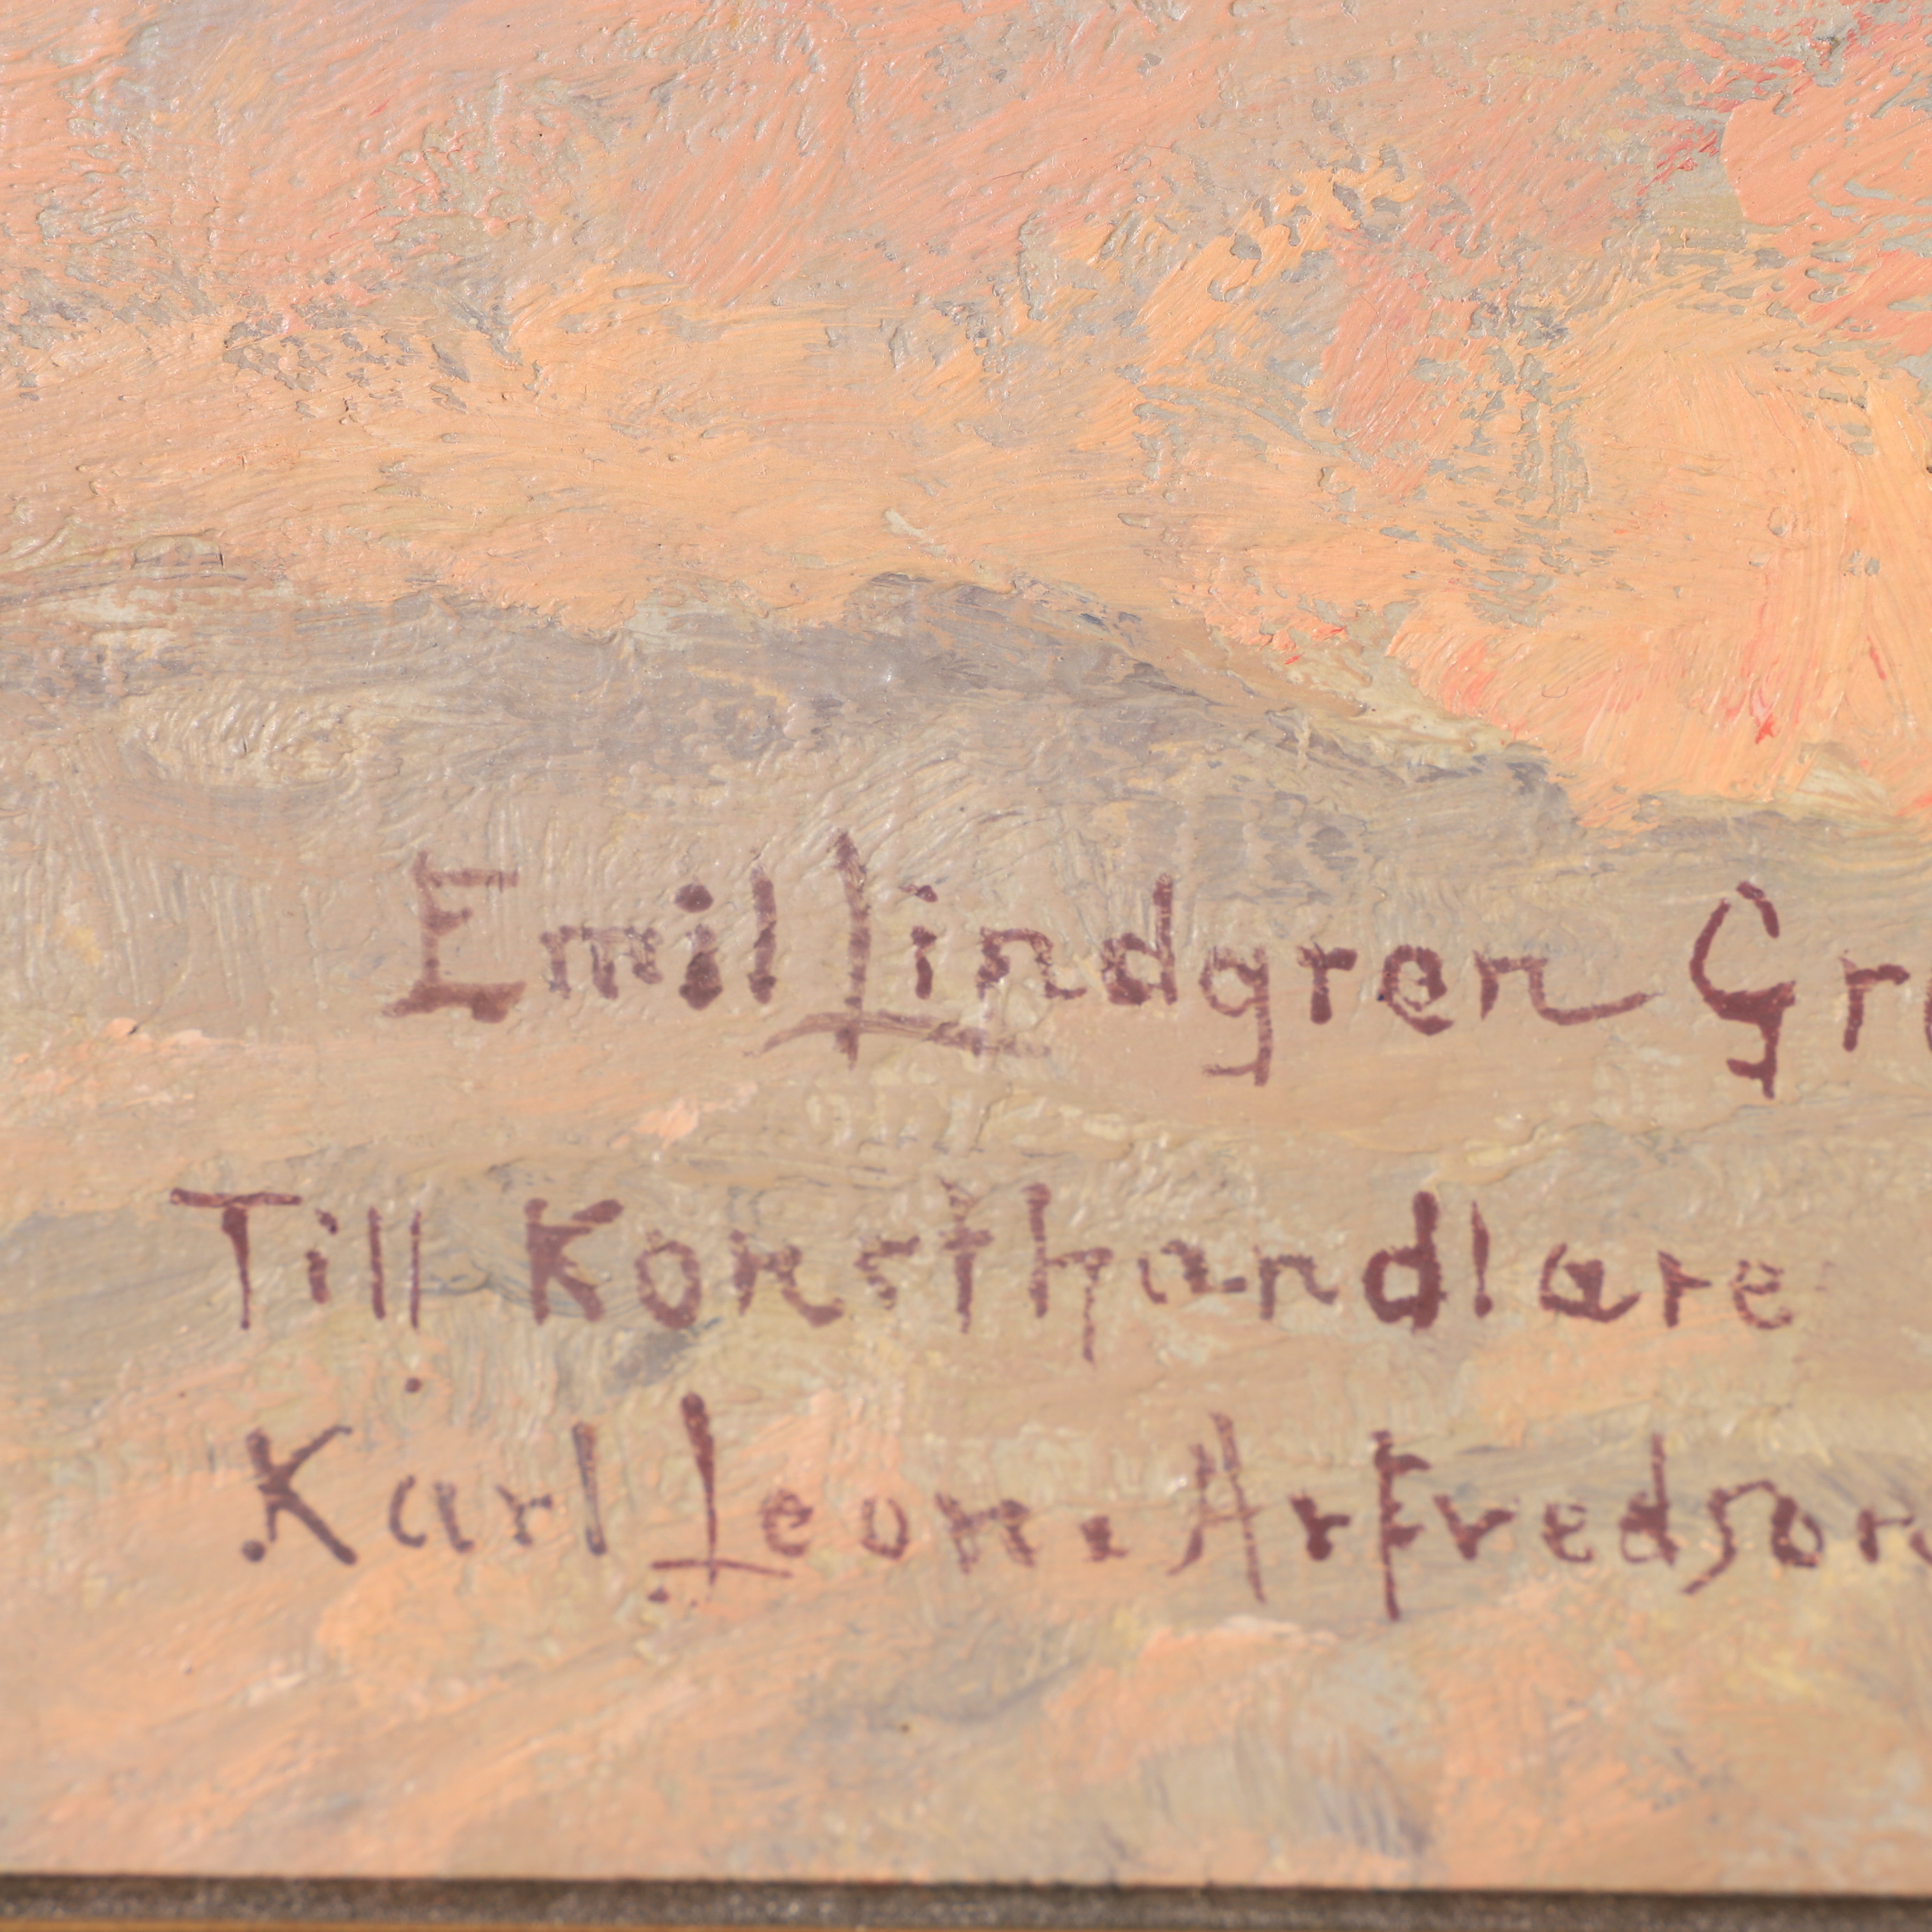 Emil Lindgren Gr
Till Konsthandlare
Karl Leon. Arfvedson